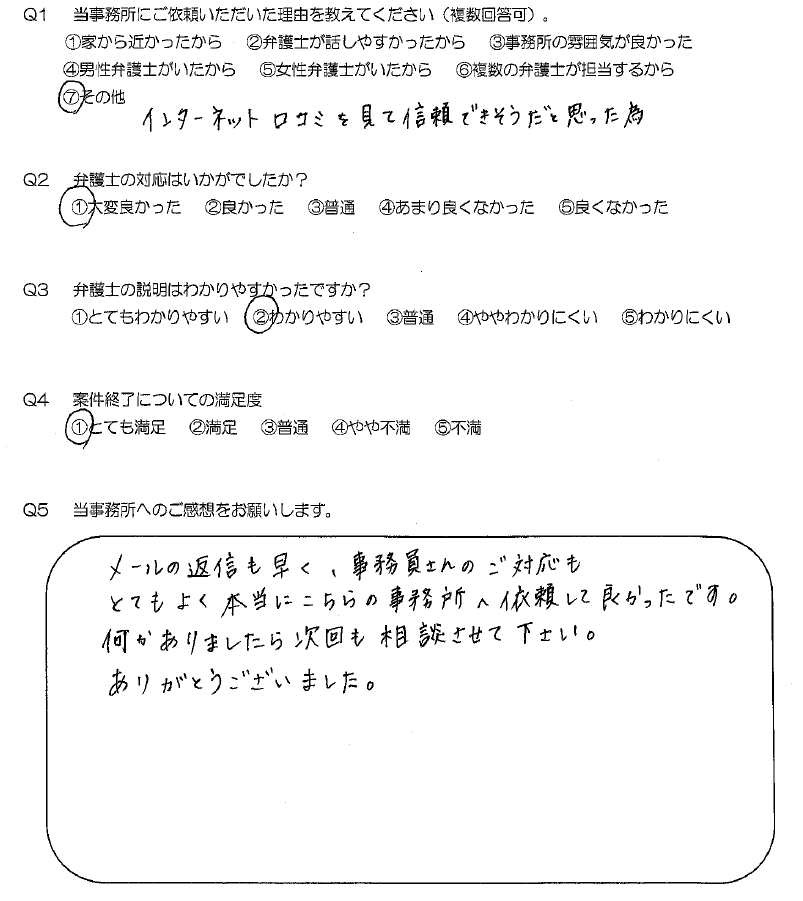 Q1 当事務所にご依頼いただいた理由を教えてください（複数回答可）。
①家から近かったから ②弁護士が話しやすかったから ③事務所の雰囲気が良かった
④男性弁護士がいたから ⑤女性弁護士がいたから ⑥複数の弁護士が担当するから
⑦その他
インターネット口コミを見て信頼できそうだと思った為
Q2 弁護士の対応はいかがでしたか？
①大変良かった ②良かった ③普通 ④あまり良くなかった ⑤良くなかった
Q3 弁護士の説明はわかりやすかったですか？
①とてもわかりやすい ②わかりやすい ③普通 ④ややわかりにくい ⑤わかりにくい
Q4 案件終了についての満足度
①とても満足 ②満足 ③普通 ④やや不満 ⑤不満
Q5 当事務所へのご感想をお願いします。
メールの返信も早く、事務員さんのご対応も
とてもよく本当にこちらの事務所へ依頼して良かったです。
何かありましたら次回も相談させて下さい。
ありがとうございました。